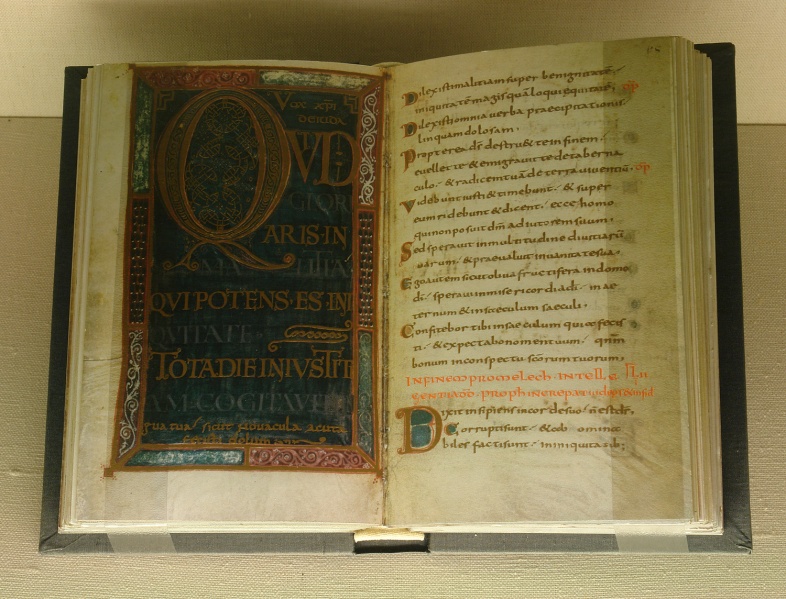 Vox xp̄i
de iuda
QUID
GLOR
ARIS·IN
MALITIA
QVI POTENS·ES·INI
QVITATE
TOTA DIE INIVSTIT
AM·COGITAVIT
gua tua· sicut novacula acuta
Dilexisti malitiam super benignitatē·
iniquitatē magis quā loqui equitatē·
Dilexisti omnia verba praecipitationis·
lingua dolosam·
Propterea d̄s destru& te in finem·
evell& te & emigravit te de taberna
culo· & radicem tuā de terra viventiū·
Videbunt iusti & timebunt· & super
eum ridebunt & dicent· ecce homo
qui non posuit dm̄ adiutorem suum·
Sed speravit in multitudine divitiarū
suarum· & praevaluit in vanitate sua·
Ego autem sicut oliva fructifera in domo
di· speravi in misericordia di· in ae
ternum & in saeculum saeculi·
Confitebor tibi in saeculum quia fecis
ti· & expectabo nomen tuum· qnm̄
bonum in conspectu scōrum tuorum·
IN FINEM PRO MELECH INTELL
Dixit insipiens in corde suo· n̄ est ds̄·
Corrupti sunt· & abominae
biles facti sunt· in iniquitatib;